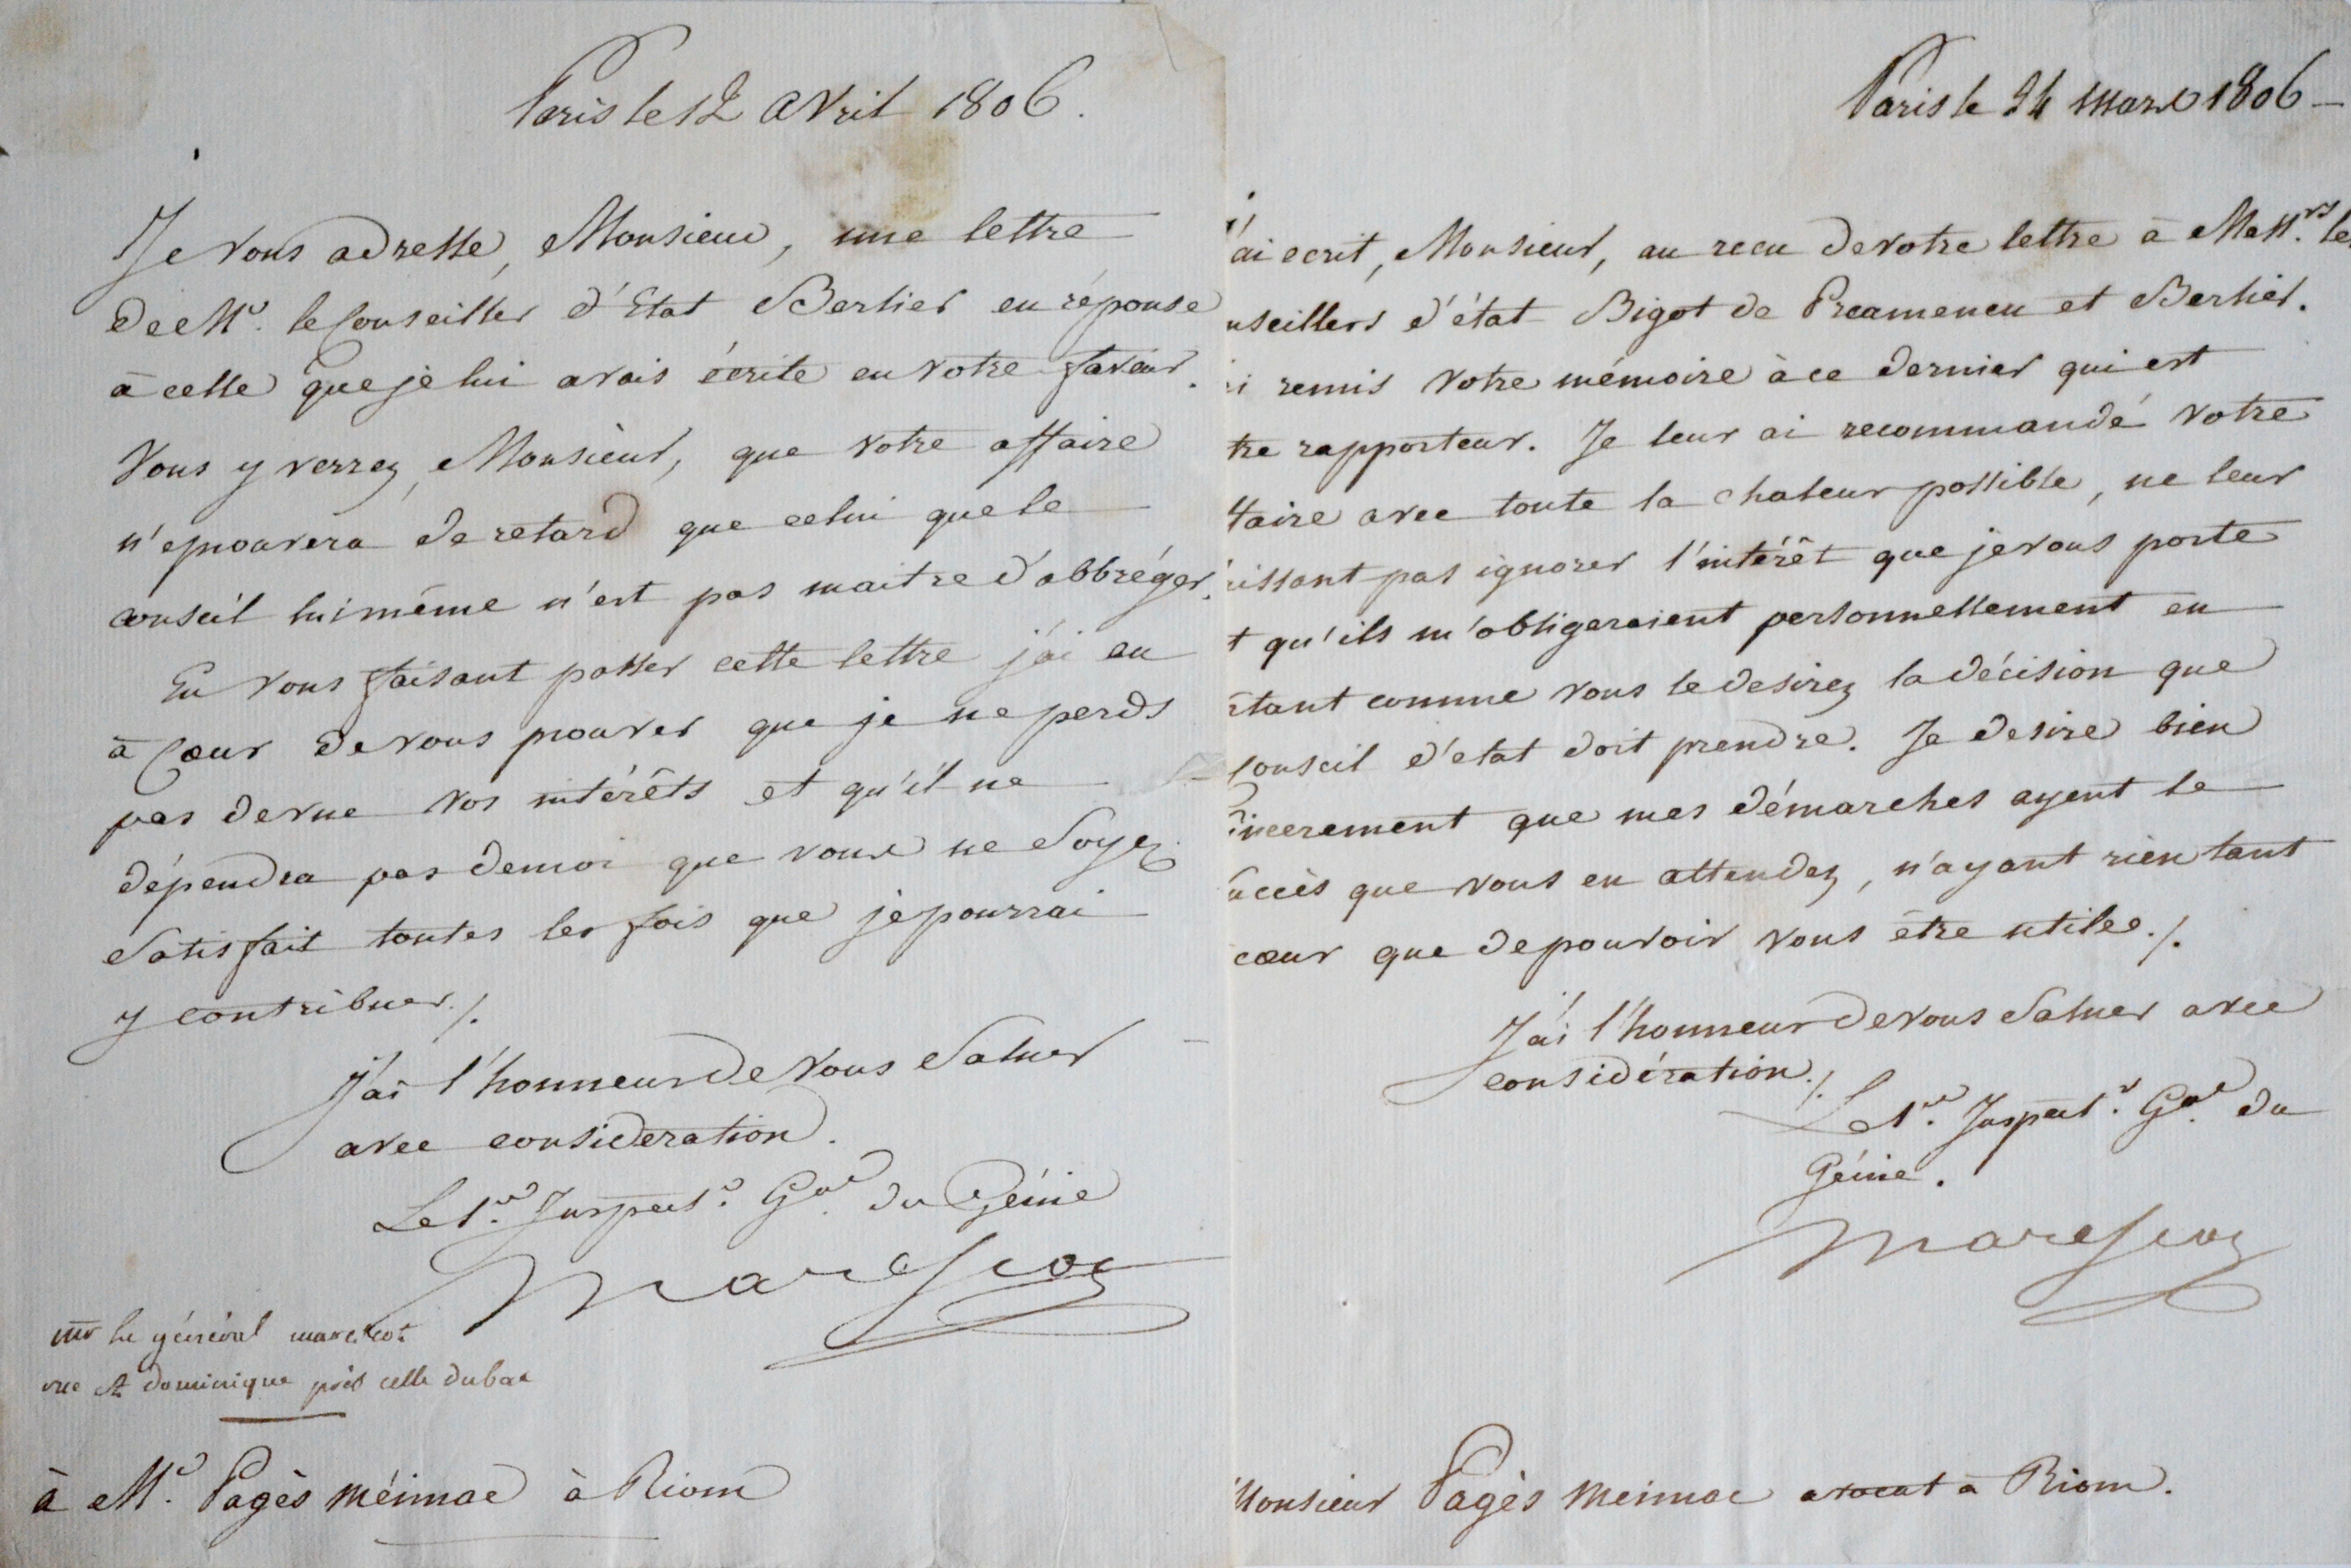 Paris le 12 avril 1806.
Je vous adresse, Monsieur, une lettre
de Mr. le Conseiller d'Etat Berlier en réponse
à celle que je lui avais écrite en votre faveur.
Vous y verrez, Monsieur, que votre affaire
n'eprouvera de retard que celui que le
conseil lui même n'est pas maitre d'abbréger.
En vous faisant passer cette lettre j'ai eu
à Cœur de vous prouver que je ne perds
pas de vue vos intérêts et qu'il ne
dépendra pas de moi que vous ne soyez
satisfait toutes les fois que je pourrai
y contribuer./.
J'ai l'honneur de vous saluer
avec consideration.
Le 1er. Inspect.r Gal. du Génie
Marescot
mr le général marescot
rue st dominique près celle dubac
à Mr. Pagès méimac à Riom
Paris le 24 mars 1806
'ai ecrit, Monsieur, au recu de votre lettre à Mess.rs les
nseillers d'état Bigot de Preameneu et Berlier.
i remis votre mémoire à ce dernier qui est
tre rapporteur. Je leur ai recommandé votre
ffaire avec toute la chaleur possible, ne leur
aissant pas ignorer l'intérêt que je vous porte
t qu'ils m'obligeraient personnellement en
tant comme vous le desirez la décision que
Conseil d'etat doit prendre. Je desire bien
sincerement que mes démarches ayent le
succès que vous en attendez, n'ayant rien tant
cœur que de pouvoir vous être utile./.
J'ai l'honneur de vous saluer avec
considération./.
Le 1er. Inspect.r Gal. du
Génie.
Marescot
Monsieur Pagès meimac avocat à Riom.